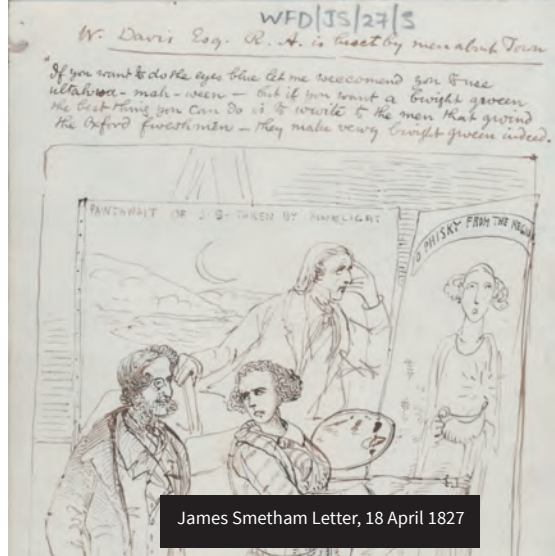 WFD/JS/27/3
W. Davis Esq. R. A. is beset by men about Town
"If you want to do the eyes blue let me weecomend you to use
ultahwa - mah - ween – but if you want a bwight gween
the best thing you can do is to wwite to the men that gwind
the Oxford fweshmen – they make vewy bwight gween indeed.
PAINTHWAIT OF J. S. TAKEN BY MOONLIGHT
O PHISKY FROM THE
James Smetham Letter, 18 April 1827